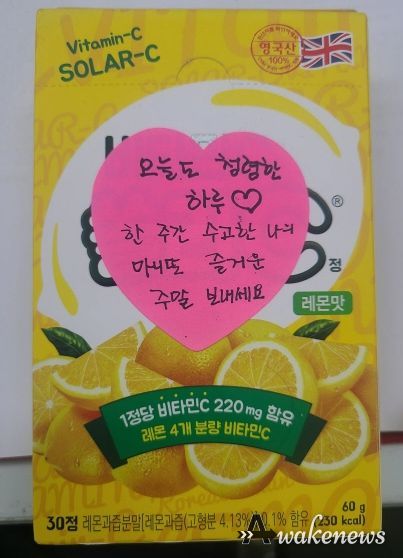 Vitamin-C
SOLAR-C
영국산
100%
오늘도 청렴한
하루♡
한 주간 수고한 나의
마니또 즐거운
주말 보내세요
®
정
레몬맛
1정당 비타민C 220 mg 함유
레몬 4개 분량 비타민C
60 g
30정 레몬과즙분말[레몬과즙(고형분 4.13%) 0.1% 함유 (230 kcal)
Awakenews